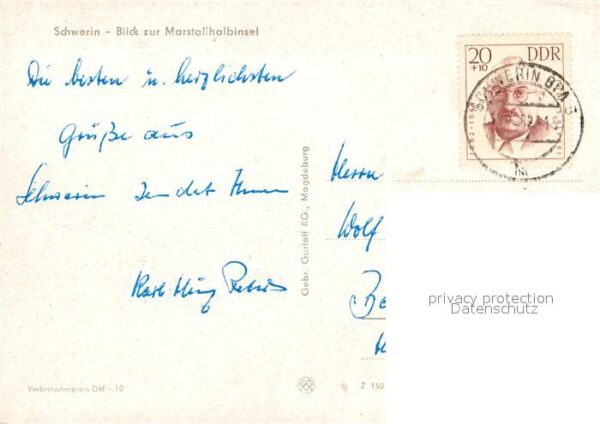 Schwerin – Blick zur Marstallhalbinsel
Die besten u. herzlichsten
Grüße aus
Schwerin sendet Ihnen
Karl Heinz
Herrn
Wolf
Gebr. Garloff KG., Magdeburg
20
+10
DDR
SCHWERIN BPA 3
privacy protection
Datenschutz
Verbraucherpreis DM -,10
Z 150